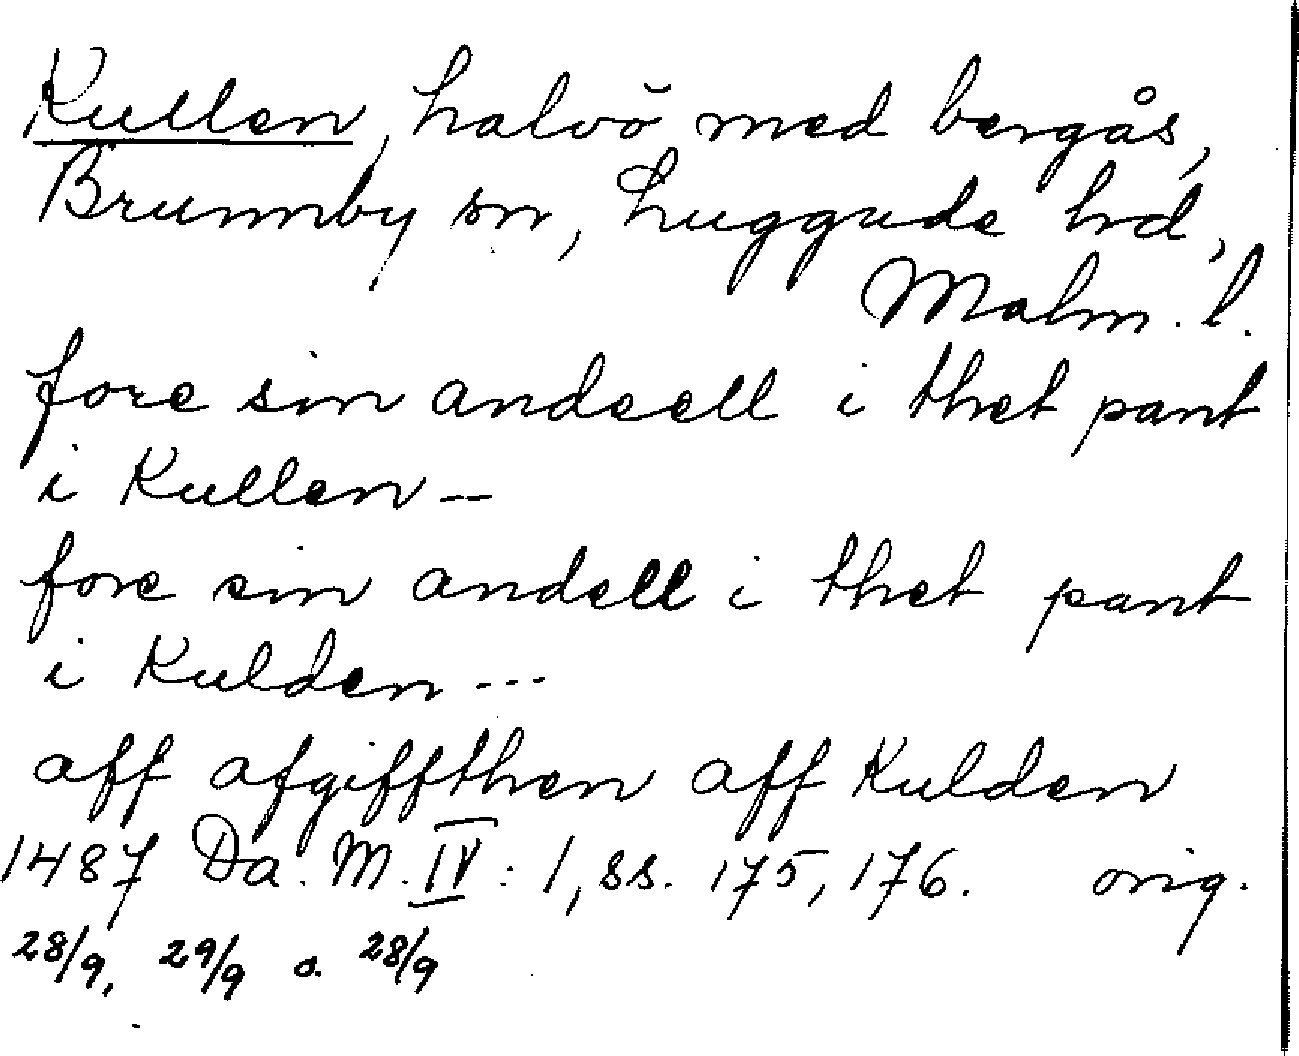 Kullen, halvö med bergås,
Brunnby sn, Luggude hd,
Malm. l.
fore sin andeell i thet pant
i Kullen --
fore sin andell i thet pant
i Kulden ---
aff afgiffthen aff Kulden
1487 Da. M. IV : 1, ss. 175, 176. orig.
28/9, 29/9 o. 28/9